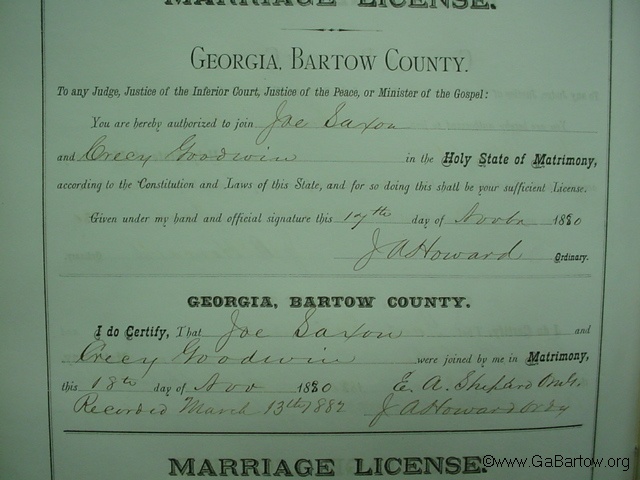 MARRIAGE LICENSE.
GEORGIA, BARTOW COUNTY.
To any Judge, Justice of the Inferior Court, Justice of the Peace, or Minister of the Gospel:
You are hereby authorized to join Joe Saxon
and Crecy Goodwin in the Holy State of Matrimony,
according to the Constitution and Laws of this State, and for so doing this shall be your sufficient License.
Given under my hand and official signature this 17th day of Novbr 1880
J A Howard Ordinary.
GEORGIA, BARTOW COUNTY.
I do Certify, That Joe Saxon and
Crecy Goodwin were joined by me in Matrimony,
this 18th day of Nov 1880 E. A. Sheperd
Recorded March 13th 1882 J A Howard ordy
MARRIAGE LICENSE.
©www.GaBartow.org